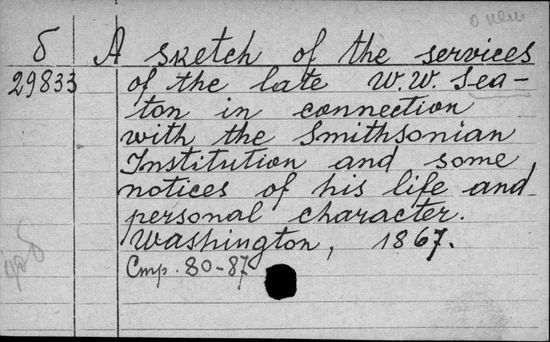 о нем
б A sketch of the services
29833 of the late W.W. Sea-
ton in connection
with the Smithsonian
Institution and some
notices of his life and
personal character.
Washington, 1867.
Стр. 80-87